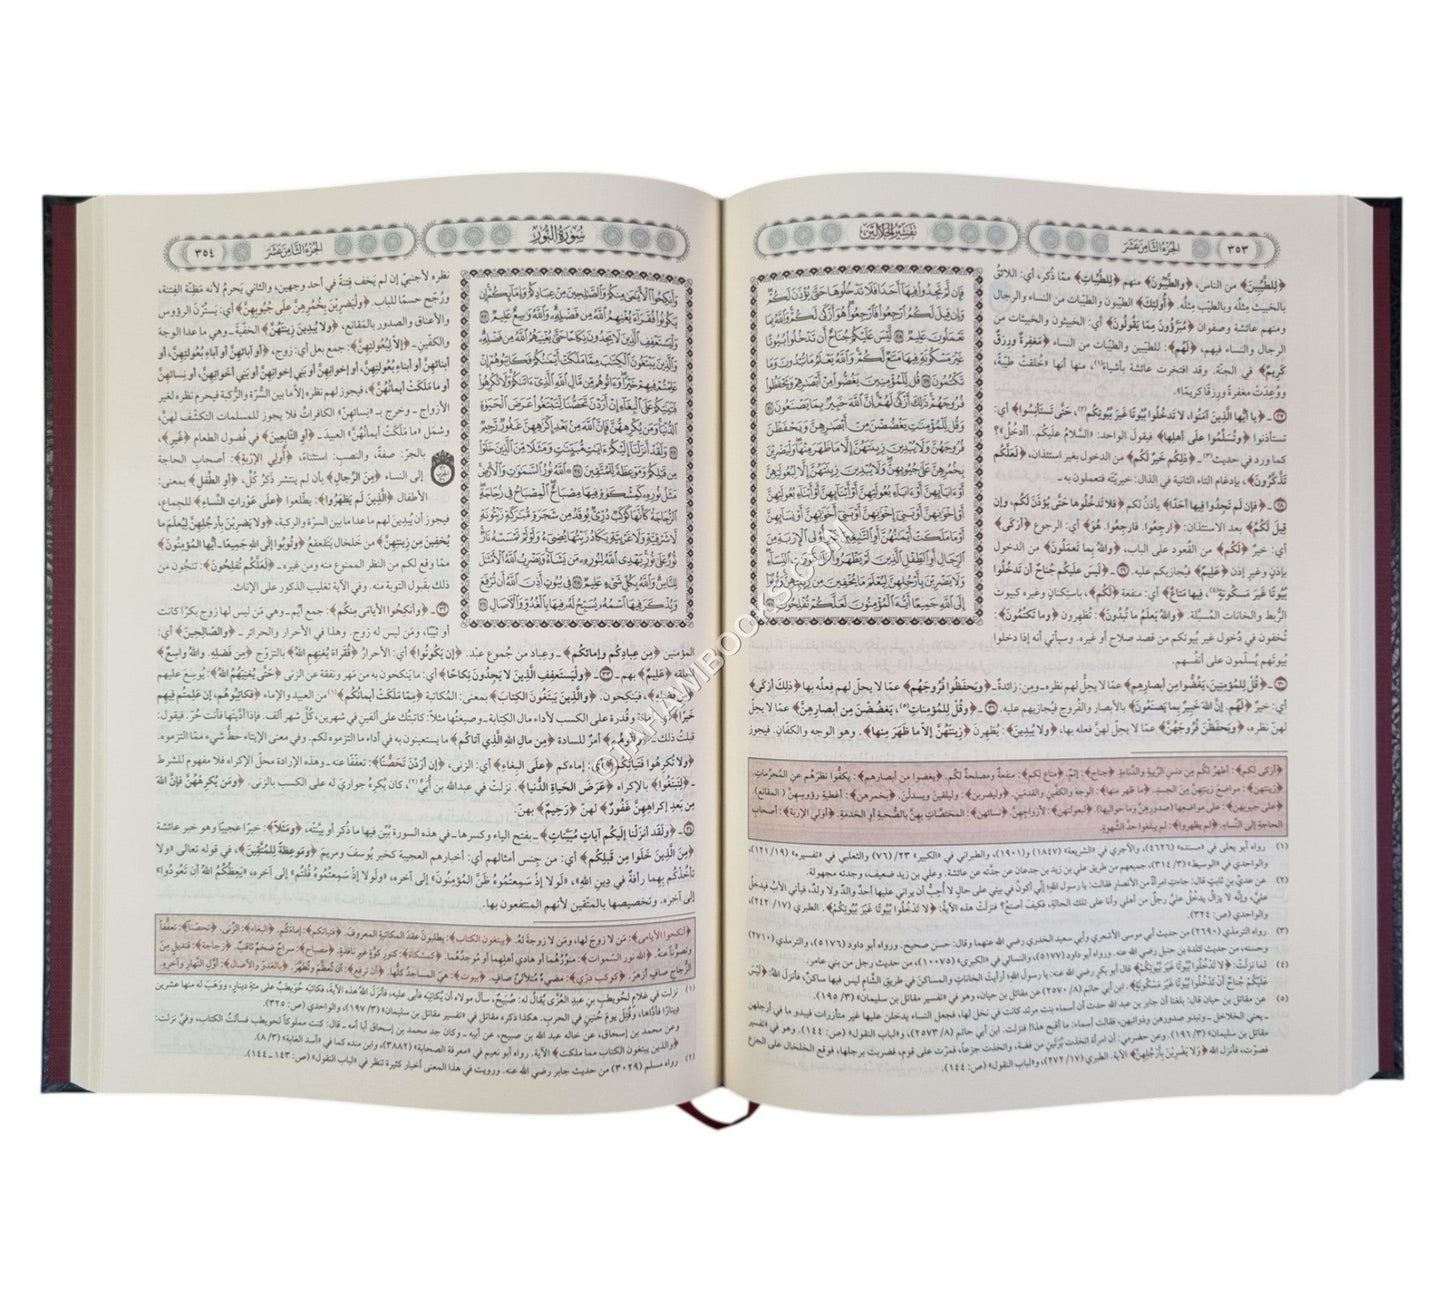 ٣٥٣
الجزء الثامن عشر
تفسير الجلالين
فَإِن لَّمْ تَجِدُوا فِيهَا أَحَدًا فَلَا تَدْخُلُوهَا حَتَّىٰ يُؤْذَنَ لَكُمْ
وَإِن قِيلَ لَكُمُ ارْجِعُوا فَارْجِعُوا هُوَ أَزْكَىٰ لَكُمْ وَاللَّهُ بِمَا
تَعْمَلُونَ عَلِيمٌ ٢٨ لَّيْسَ عَلَيْكُمْ جُنَاحٌ أَن تَدْخُلُوا بُيُوتًا
غَيْرَ مَسْكُونَةٍ فِيهَا مَتَاعٌ لَّكُمْ وَاللَّهُ يَعْلَمُ مَا تُبْدُونَ وَمَا
تَكْتُمُونَ ٢٩ قُل لِّلْمُؤْمِنِينَ يَغُضُّوا مِنْ أَبْصَارِهِمْ وَيَحْفَظُوا
فُرُوجَهُمْ ذَٰلِكَ أَزْكَىٰ لَهُمْ إِنَّ اللَّهَ خَبِيرٌ بِمَا يَصْنَعُونَ ٣٠
وَقُل لِّلْمُؤْمِنَاتِ يَغْضُضْنَ مِنْ أَبْصَارِهِنَّ وَيَحْفَظْنَ
فُرُوجَهُنَّ وَلَا يُبْدِينَ زِينَتَهُنَّ إِلَّا مَا ظَهَرَ مِنْهَا وَلْيَضْرِبْنَ
بِخُمُرِهِنَّ عَلَىٰ جُيُوبِهِنَّ وَلَا يُبْدِينَ زِينَتَهُنَّ إِلَّا لِبُعُولَتِهِنَّ
أَوْ آبَائِهِنَّ أَوْ آبَاءِ بُعُولَتِهِنَّ أَوْ أَبْنَائِهِنَّ أَوْ أَبْنَاءِ بُعُولَتِهِنَّ
أَوْ إِخْوَانِهِنَّ أَوْ بَنِي إِخْوَانِهِنَّ أَوْ بَنِي أَخَوَاتِهِنَّ أَوْ نِسَائِهِنَّ
أَوْ مَا مَلَكَتْ أَيْمَانُهُنَّ أَوِ التَّابِعِينَ غَيْرِ أُولِي الْإِرْبَةِ مِنَ
الرِّجَالِ أَوِ الطِّفْلِ الَّذِينَ لَمْ يَظْهَرُوا عَلَىٰ عَوْرَاتِ النِّسَاءِ
وَلَا يَضْرِبْنَ بِأَرْجُلِهِنَّ لِيُعْلَمَ مَا يُخْفِينَ مِن زِينَتِهِنَّ وَتُوبُوا
إِلَى اللَّهِ جَمِيعًا أَيُّهَ الْمُؤْمِنُونَ لَعَلَّكُمْ تُفْلِحُونَ ٣١
﴿لِلطَّيِّبِينَ﴾ من الناس، ﴿وَالطَّيِّبُونَ﴾ منهم ﴿لِلطَّيِّبَاتِ﴾ ممّا ذُكر، أي: اللائقُ
بالخبيث مثلُه وبالطيّب مثلُه. ﴿أُولَئِكَ﴾ الطيّبون والطيّبات من النساء والرجال
ومنهم عائشة وصفوان ﴿مُبَرَّؤُونَ مِمَّا يَقُولُونَ﴾ أي: الخبيثون والخبيثات من
الرجال والنساء فيهم، ﴿لَهُم﴾: للطيّبين والطيّبات من النساء ﴿مَغفِرةٌ ورِزقٌ
كَرِيمٌ﴾ في الجنّة. وقد افتخرت عائشة بأشياء(١)، منها أنها «خُلقت طيّبةً،
ووُعِدَتْ مغفرةً ورزقًا كريمًا».
٢٧ ـ ﴿يا أيُّها الَّذِينَ آمَنُوا، لا تَدخُلُوا بُيُوتًا غَيرَ بُيُوتِكُم(٢)، حَتَّى تَستأنِسُوا﴾ أي:
تستأذنوا ﴿وتُسَلِّمُوا علَى أهلِها﴾ فيقول الواحد: «السّلامُ عليكم. أأدخُلُ»؟
كما ورد في حديث(٣) ـ ﴿ذلِكُم خَيرٌ لَكُم﴾ من الدخول بغير استئذان، ﴿لَعَلَّكُم
تَذَّكَّرُونَ﴾، بإدغام التاء الثانية في الذال: خيريّته فتعملون به ـ
٢٨ ـ ﴿فإن لَم تَجِدُوا فِيها أحَدًا﴾ يأذنُ لكم ﴿فلا تَدخُلُوها حَتَّى يُؤذَنَ لَكُم، وإن
قِيلَ لَكُمُ﴾ بعد الاستئذان: ﴿ارجِعُوا. فارجِعُوا. هُوَ﴾ أي: الرجوع ﴿أزكَى﴾
أي: خيرٌ ﴿لَكُم﴾ من القعود على الباب، ﴿واللهُ بِما تَعمَلُونَ﴾ من الدخول
بإذنٍ وغيرِ إذنٍ ﴿عَلِيمٌ﴾ فيُجازيكم عليه. ٢٩ ـ ﴿لَيسَ علَيكُم جُناحٌ أن تَدخُلُوا
بُيُوتًا غَيرَ مَسكُونةٍ(٤)، فِيها مَتاعٌ﴾ أي: منفعة ﴿لَكُم﴾، باستِكنانٍ وغيره كبيوت
الرُّبط والخانات المُسبَّلة. ﴿واللهُ يَعلَمُ ما تُبدُونَ﴾: تُظهرون ﴿وما تَكتُمُونَ﴾:
تُخفون في دُخول غير بُيوتكم من قصد صلاح أو غيره. وسيأتي أنه إذا دخلوا
بُيوتَهم يُسلّمون على أنفُسهم.
٣٠ ـ ﴿قُل لِلمُؤمِنِينَ، يَغُضُّوا مِن أبصارِهِم﴾ عمّا لا يحِلُّ لهم نظره ـ ومِن: زائدة ـ ﴿ويَحفَظُوا فُرُوجَهُم﴾ عمّا لا يحلّ لهم فِعلُه بها ﴿ذلِكَ أزكَى﴾
أي: خيرٌ ﴿لَهُم. إنَّ اللهَ خَبِيرٌ بِما يَصنَعُونَ﴾ بالأبصار والفُروج فيُجازيهم عليه. ٣١ ـ ﴿وقُل لِلمُؤمِناتِ(٥)، يَغضُضْنَ مِن أبصارِهِنَّ﴾ عمّا لا يحلّ
لهنّ نظره، ﴿ويَحفَظْنَ فُرُوجَهُنَّ﴾ عمّا لا يحلّ لهنّ فعله بها، ﴿ولا يُبدِينَ﴾: يُظهِرنَ ﴿زِينَتَهُنَّ إلّا ما ظَهَرَ مِنها﴾. وهو الوجه والكفّان، فيجوز
﴿أزكى لكم﴾: أطهرُ لكُم مِن دنسِ الرِّيبةِ والدَّناءةِ. ﴿جناح﴾: إثمٌ. ﴿متاع لكم﴾: منفعةٌ ومصلحةٌ لكُم. ﴿يغضوا من أبصارهم﴾: يكفُّوا نظرَهُم عنِ المُحرَّماتِ.
﴿زينتهن﴾: مواضعَ زينتِهنَّ مِنَ الجسدِ. ﴿ما ظهر منها﴾: الوجه والكفّينِ والقدمَينِ. ﴿وليضربن﴾: وليُلقينَ ويسدلْنَ. ﴿بخمرهن﴾: أغطيةِ رؤوسِهنَّ (المقانعِ).
﴿على جيوبهن﴾: على مواضعِها (صدورِهنَّ وما حواليها). ﴿لبعولتهن﴾: لأزواجِهنَّ. ﴿نسائهن﴾: المختصّاتِ بهنَّ بالصُّحبةِ أو الخدمةِ. ﴿أولي الإربة﴾: أصحابِ
الحاجةِ إلى النِّساءِ. ﴿لم يظهروا﴾: لم يبلغوا حدَّ الشَّهوةِ.
(١) رواه أبو يعلى في «مسنده» (٤٦٢٦)، والآجري في «الشريعة» (١٨٤٧) و(١٩٠١)، والطبراني في «الكبير» ٢٣/ (٧٦) والثعلبي في «تفسيره» (١٩/ ١٢١)،
والواحدي في «الوسيط» (٣/ ٣١٤)، جميعهم من طريق علي بن زيد بن جدعان عن جدَّته عن عائشة. وعلي بن زيد ضعيف، وجدته مجهولة.
(٢) عن عديِّ بنِ ثابتٍ قال: جاءتِ امرأةٌ من الأنصار فقالت: يا رسول الله! إنِّي أكونُ في بيتي على حالٍ لا أُحِبُّ أن يراني عليها أحدٌ والدٌ ولا ولدٌ، فيأتي الأبُ فيدخلُ
عليَّ، وإنَّه لا يزالُ يدخلُ عليَّ رجلٌ من أهلي وأنا على تلك الحالةِ، فكيفَ أصنعُ؟ فنزلَتْ هذه الآيةُ: ﴿لَا تَدْخُلُوا بُيُوتًا غَيْرَ بُيُوتِكُمْ﴾. الطبري (١٧/ ٢٤٢)،
والواحدي (ص: ٣٢٤).
(٣) رواه الترمذي (٢٦٩٠) من حديث أبي موسى الأشعري وأبي سعيد الخدري رضي الله عنهما وقال: حسن صحيح. ورواه أبو داود (٥١٧٦)، والترمذي (٢٧١٠)
وحسنه، من حديث كلدة بن حنبل رضي الله عنه. ورواه أبو داود (٥١٧٧)، والنسائي في «الكبرى» (١٠٠٧٥) من حديث رجل من بني عامر.
(٤) لما نزلَتْ: ﴿لَا تَدْخُلُوا بُيُوتًا غَيْرَ بُيُوتِكُمْ﴾ قال أبو بكرٍ رضي الله عنه: يا رسولَ الله! أرأيتَ الخاناتِ والمساكنَ في طريقِ الشَّامِ ليس فيها ساكنٌ، فأنزلَ اللهُ: ﴿لَيْسَ
عَلَيْكُمْ جُنَاحٌ أَنْ تَدْخُلُوا بُيُوتًا غَيْرَ مَسْكُونَةٍ﴾. ابن أبي حاتم (٨/ ٢٥٧٠) عن مقاتل بن حيان، وهو في «تفسير مقاتل بن سليمان» (٣/ ١٩٥).
(٥) عن مقاتل بن حيان قال: بلغنا أن جابر بن عبد الله حدث أن أسماء بنت مرثد كانت في نخل لها، فجعل النساء يدخلن عليها غير متأزرات فيبدو ما في أرجلهن
ـ يعني الخلاخل ـ وتبدو صدورهن وذوائبهن، فقالت أسماء: ما أقبح هذا! فنزلت. ابن أبي حاتم (٨/ ٢٥٧٣)، و«لباب النقول» (ص: ١٤٤). وهو في «تفسير
مقاتل بن سليمان» (٣/ ١٩٦). وعن حضرمي: أن امرأة اتخذت بُرَتَينِ من فضة، واتخذت جزعاً، فمرَّت على قوم، فضربت برجلها، فوقع الخلخال على الجزع
فصوَّت، فأنزل الله ﴿وَلَا يَضْرِبْنَ بِأَرْجُلِهِنَّ﴾ الآية. الطبري (١٧/ ٢٧٢)، و«لباب النقول» (ص: ١٤٤).
سورة النور
الجزء الثامن عشر
٣٥٤
وَأَنكِحُوا الْأَيَامَىٰ مِنكُمْ وَالصَّالِحِينَ مِنْ عِبَادِكُمْ وَإِمَائِكُمْ إِن
يَكُونُوا فُقَرَاءَ يُغْنِهِمُ اللَّهُ مِن فَضْلِهِ وَاللَّهُ وَاسِعٌ عَلِيمٌ ٣٢
وَلْيَسْتَعْفِفِ الَّذِينَ لَا يَجِدُونَ نِكَاحًا حَتَّىٰ يُغْنِيَهُمُ اللَّهُ مِن فَضْلِهِ
وَالَّذِينَ يَبْتَغُونَ الْكِتَابَ مِمَّا مَلَكَتْ أَيْمَانُكُمْ فَكَاتِبُوهُمْ إِنْ
عَلِمْتُمْ فِيهِمْ خَيْرًا وَآتُوهُم مِّن مَّالِ اللَّهِ الَّذِي آتَاكُمْ وَلَا تُكْرِهُوا
فَتَيَاتِكُمْ عَلَى الْبِغَاءِ إِنْ أَرَدْنَ تَحَصُّنًا لِّتَبْتَغُوا عَرَضَ الْحَيَاةِ
الدُّنْيَا وَمَن يُكْرِههُّنَّ فَإِنَّ اللَّهَ مِن بَعْدِ إِكْرَاهِهِنَّ غَفُورٌ رَّحِيمٌ
٣٣ وَلَقَدْ أَنزَلْنَا إِلَيْكُمْ آيَاتٍ مُّبَيِّنَاتٍ وَمَثَلًا مِّنَ الَّذِينَ خَلَوْا
مِن قَبْلِكُمْ وَمَوْعِظَةً لِّلْمُتَّقِينَ ٣٤ اللَّهُ نُورُ السَّمَاوَاتِ وَالْأَرْضِ
مَثَلُ نُورِهِ كَمِشْكَاةٍ فِيهَا مِصْبَاحٌ الْمِصْبَاحُ فِي زُجَاجَةٍ
الزُّجَاجَةُ كَأَنَّهَا كَوْكَبٌ دُرِّيٌّ يُوقَدُ مِن شَجَرَةٍ مُّبَارَكَةٍ زَيْتُونَةٍ
لَّا شَرْقِيَّةٍ وَلَا غَرْبِيَّةٍ يَكَادُ زَيْتُهَا يُضِيءُ وَلَوْ لَمْ تَمْسَسْهُ نَارٌ
نُّورٌ عَلَىٰ نُورٍ يَهْدِي اللَّهُ لِنُورِهِ مَن يَشَاءُ وَيَضْرِبُ اللَّهُ الْأَمْثَالَ
لِلنَّاسِ وَاللَّهُ بِكُلِّ شَيْءٍ عَلِيمٌ ٣٥ فِي بُيُوتٍ أَذِنَ اللَّهُ أَن تُرْفَعَ
وَيُذْكَرَ فِيهَا اسْمُهُ يُسَبِّحُ لَهُ فِيهَا بِالْغُدُوِّ وَالْآصَالِ ٣٦
نظره لأجنبيّ إن لم يَخف فِتنةً في أحد وجهين، والثاني يَحرم لأنه مَظِنّة الفِتنة،
ورُجّح حسمًا للباب. ﴿ولْيَضرِبْنَ بِخُمُرِهِنَّ علَى جُيُوبِهِنَّ﴾ أي: يَسترْنَ الرؤوس
والأعناق والصدور بالمَقانع، ﴿ولا يُبدِينَ زِينَتَهُنَّ﴾: الخفيّة ـ وهي ما عدا الوجه
والكفّين ـ ﴿إلّا لِبُعُولَتِهِنَّ﴾: جمع بعل أي: زوج، ﴿أو آبائهِنَّ أو آباءِ بُعُولَتِهِنَّ، أو
أبنائهِنَّ أو أبناءِ بُعُولَتِهِنَّ، أو إخوانِهِنَّ أو بَنِي إخوانِهِنَّ أو بَنِي أخَواتِهِنَّ، أو نِسائهِنَّ
أو ما مَلَكَت أيمانُهُنَّ﴾، فيجوز لهم نظره إلّا ما بين السرّة والرُّكبة فيحرم نظره لغير
الأزواج ـ وخرج بـ «نِسائهنّ» الكافراتُ فلا يجوز للمسلمات التكشّف لهنّ،
وشمَل «ما مَلَكَت أيمانُهُنّ» العبيدَ ـ ﴿أوِ التّابِعِينَ﴾ في فُضول الطعام ﴿غَيرِ﴾،
بالجرّ: صفةً، والنصب: استثناءً، ﴿أُولِي الإربةِ﴾: أصحاب الحاجة
إلى النساء ﴿مِنَ الرِّجالِ﴾ بأن لم ينتشر ذَكرُ كُلٍّ، ﴿أوِ الطِّفلِ﴾ بمعنى:
الأطفال ﴿الَّذِينَ لَم يَظهَرُوا﴾: يطّلعوا ﴿علَى عَوراتِ النِّساءِ﴾ للجماع،
فيجوز أن يُبدينَ لهم ما عدا ما بين السرّة والركبة، ﴿ولا يَضرِبْنَ بِأرجُلِهِنَّ لِيُعلَمَ ما
يُخفِينَ مِن زِينَتِهِنَّ﴾ من خَلخال يَتقعقع ﴿وتُوبُوا إلَى اللهِ جَمِيعًا، أيُّها المُؤمِنُونَ﴾
ممّا وقع لكم من النظر الممنوع منه ومن غيره، ـ ﴿لَعَلَّكُم تُفلِحُونَ﴾: تنجُون من
ذلك بقبول التوبة منه. وفي الآية تغليب الذكور على الإناث.
٣٢ ـ ﴿وأنكِحُوا الأيامَى مِنكُم﴾: جمع أيِّم ـ وهي مَن ليس لها زوج بكرًا كانت
أو ثيّبًا، ومَن ليس له زوج. وهذا في الأحرار والحرائر ـ ﴿والصّالِحِينَ﴾ أي:
المؤمنين ﴿مِن عِبادِكُم وإمائكُم﴾ ـ وعِباد من جُموع عبْد. ﴿إن يَكُونُوا﴾ أي: الأحرارُ ﴿فُقَراءَ يُغنِهِمِ اللهُ﴾ بالتزوّج ﴿مِن فَضلِهِ. واللهُ واسِعٌ﴾
لخلقه ﴿عَلِيمٌ﴾ بهم. ٣٣ ـ ﴿ولْيَستَعفِفِ الَّذِينَ لا يَجِدُونَ نِكاحًا﴾ أي: ما يَنكِحون به من مَهر ونفقة عن الزنى ﴿حَتَّى يُغنِيَهُمُ اللهُ﴾: يُوسِع عليهم
فضله، فينكِحون. ﴿والَّذِينَ يَبتَغُونَ الكِتابَ﴾ بمعنى: المُكاتبة ﴿مِمّا مَلَكَت أيمانُكُم﴾(١) من العبيد والإماء ﴿فكاتِبُوهُم، إن عَلِمتُم فِيهِم
خَيرًا﴾ وقُدرة على الكسب لأداء مال الكِتابة ـ وصيغتُها مثلًا: كاتبتُك على ألفين في شهرين، كُلَّ شهرٍ ألف. فإذا أدّيتَها فأنت حُرّ. فيقول:
قبلتُ ذلك ـ أمرٌ للسادة ﴿مِن مالِ اللهِ الَّذِي آتاكُم﴾ ما يستعينون به في أداء ما التزموه لكم. وفي معنى الإيتاء حطُّ شيء ممّا التزموه.
﴿ولا تُكرِهُوا فَتَياتِكُم﴾ أي: إماءكم ﴿علَى البِغاءِ﴾ أي: الزنى، ﴿إن أرَدْنَ تَحَصُّنًا﴾: تعفّفًا عنه ـ وهذه الإرادة محلّ الإكراه، فلا مفهوم للشرط
ـ ﴿لِتَبتَغُوا﴾ بالإكراه ﴿عَرَضَ الحَياةِ الدُّنيا﴾. نزلتْ في عبدالله بن أُبَيّ(٢)، كان يُكرِهُ جواريَ له على الكسب بالزنى. ﴿ومَن يُكرِهْهُنَّ فإنَّ اللهَ
مِن بَعدِ إكراهِهِنَّ غَفُورٌ﴾ لهنّ ﴿رَحِيمٌ﴾ بهنّ.
٣٤ ـ ﴿ولَقَد أنزَلْنا إلَيكُم آياتٍ مُبَيَّناتٍ﴾ ـ بفتح الياء وكسرها ـ في هذه السورة بُيّن فيها ما ذُكر أو بيّنتْه، ﴿ومَثَلًا﴾: خبرًا عجيبًا وهو خبر عائشة
﴿مِنَ الَّذِينَ خَلَوا مِن قَبلِكُم﴾ أي: من جِنس أمثالهم أي: أخبارهم العجيبة كخبر يُوسف ومريم ﴿ومَوعِظةً لِلمُتَّقِينَ﴾، في قوله تعالى «ولا
تأخُذْكُم بِهِما رأفةٌ في دِينِ اللهِ»، «لَولا إذ سَمِعتُمُوهُ ظَنَّ المُؤمِنُونَ» إلى آخره، «ولَولا إذ سَمِعتُمُوهُ قُلتُم» إلى آخره، «يَعِظُكُمُ اللهُ أن تَعُودُوا»
إلى آخره. وتخصيصها بالمتّقين لأنهم المنتفعون بها.
﴿أنكحوا الأيامى﴾: مَن لا زوجَ لها، ومَن لا زوجةَ لهُ. ﴿يبتغون الكتاب﴾: يطلبونَ عقدَ المكاتبةِ المعروفَ. ﴿فتياتكم﴾: إماءَكُم. ﴿البغاء﴾: الزِّنى. ﴿تحصنا﴾: تعفُّفاً
وتصوُّناً عنهُ. ﴿الله نور السموات﴾: منوِّرُهما أو هادي أهلِهما أو مُوجِدُهما. ﴿كمشكاة﴾: كنورِ كوَّةٍ غيرِ نافذةٍ. ﴿مصباح﴾: سراجٌ ضخمٌ ثاقبٌ. ﴿زجاجة﴾: قنديلٍ مِنَ
الزُّجاجِ صافٍ أزهرَ. ﴿كوكب دري﴾: مضيءٌ متلألئٌ صافٍ. ﴿بيوت﴾: هيَ المساجدُ كلُّها. ﴿أن ترفع﴾: أن تُعظَّمَ وتُطهَّرَ. ﴿بالغدو والآصال﴾: أوَّلِ النَّهارِ وآخرِهِ.
(١) نزلت في غلام لحُويطب بن عبدِ العُزَّى يُقالُ له: صُبَيْح، سأل مولاه أن يُكاتبَه فأبى عليه، فأنزلَ اللهُ هذه الآيةَ، فكاتبَه حُويطب على مئةِ دينارٍ، ووَهَبَ له منها عشرين
دِيناراً فأدَّاها، وقُتِلَ يومَ حُنينٍ في الحربِ. هكذا ذكره مقاتل في «تفسير مقاتل بن سليمان» (٣/ ١٩٧)، والواحدي (ص: ٣٢٥).
وعن محمد بن إسحاق، عن خاله عبد الله بن صبيح، عن أبيه ـ وكان جد محمد بن إسحاق أبا أمه ـ قال: كنت مملوكاً لحويطب فسألتُ الكتاب، وفيَّ نزلت:
﴿والذين يبتغون الكتاب مما ملكت﴾ الآية. رواه أبو نعيم في «معرفة الصحابة» (٣٨٨٢)، وابن منده كما في «أسد الغابة» (٣/ ٨).
(٢) رواه مسلم (٣٠٢٩) من حديث جابر رضي الله عنه. ورويت في هذا المعنى أخبار كثيرة تنظر في «لباب النقول» (ص: ١٤٣ ـ ١٤٤).
©JAHAMBOOKS.COM